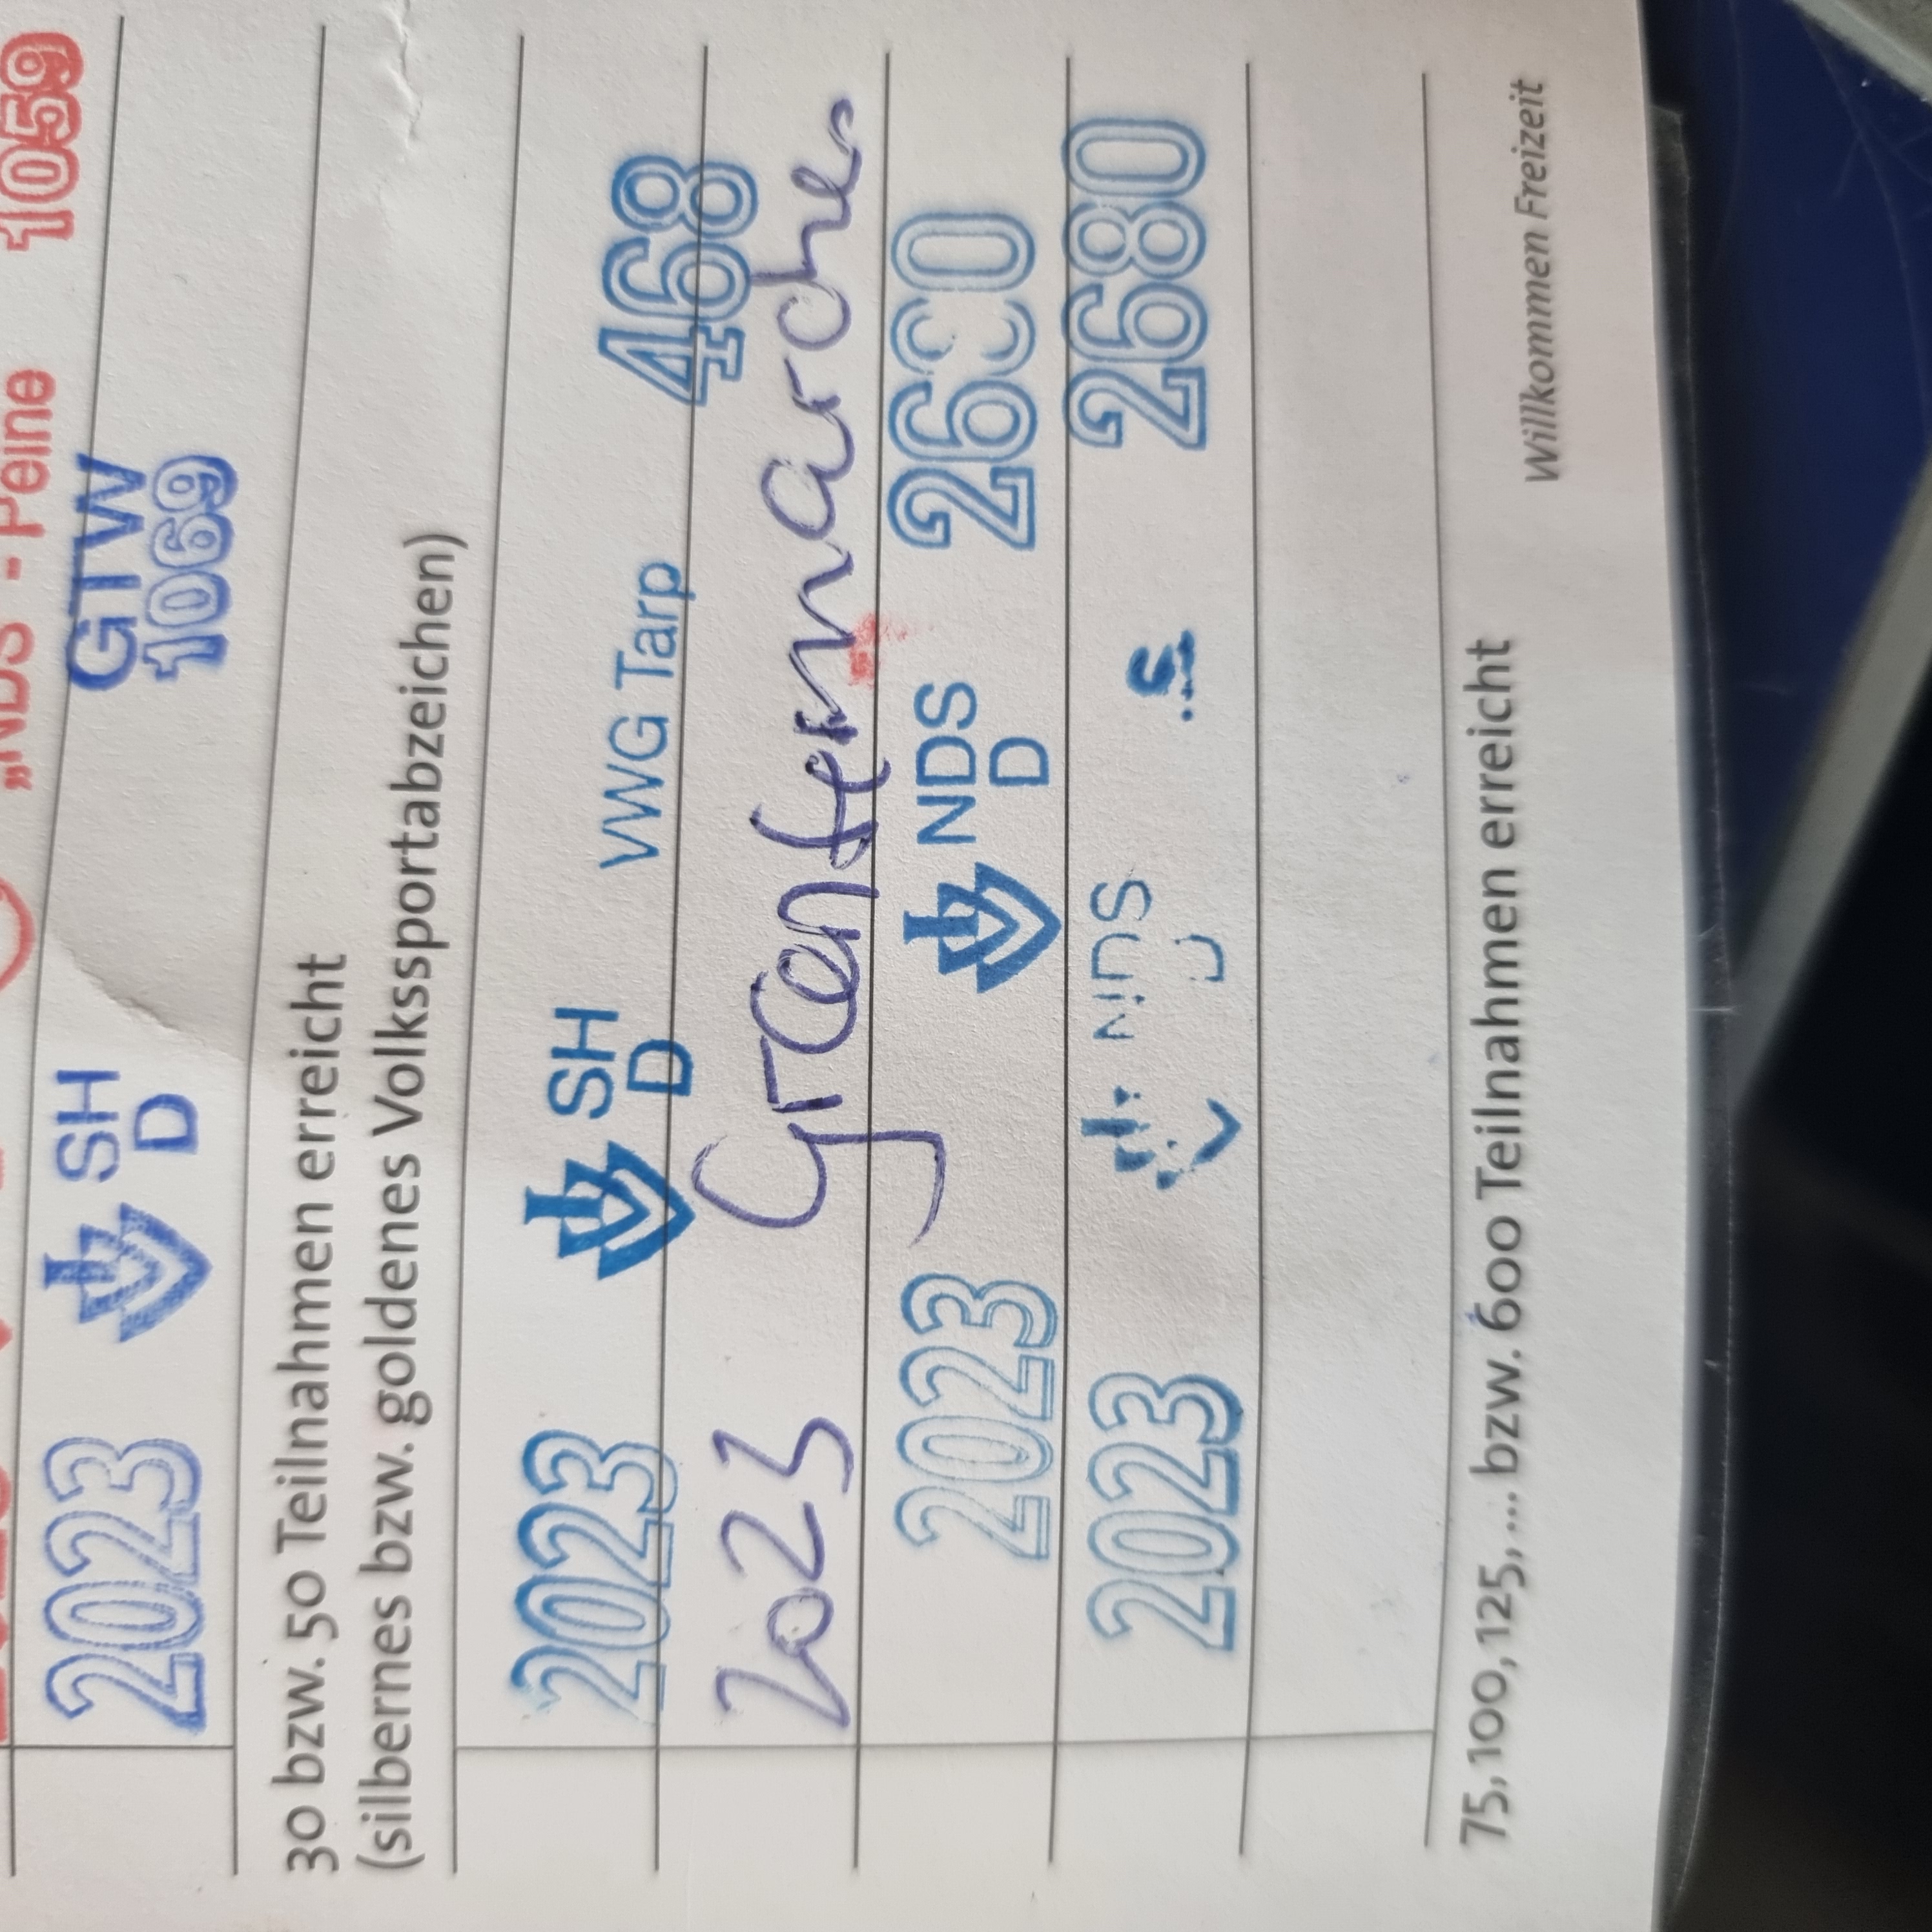 „NDS - Peine 1059
2023 SH D GTW 1069
30 bzw. 50 Teilnahmen erreicht
(silbernes bzw. goldenes Volkssportabzeichen)
2023 SH D VWG Tarp 468
2023 Graftenmarche
2023 NDS D 2630
2023 NDS D 2680
75, 100, 125, ... bzw. 600 Teilnahmen erreicht Willkommen Freizeit